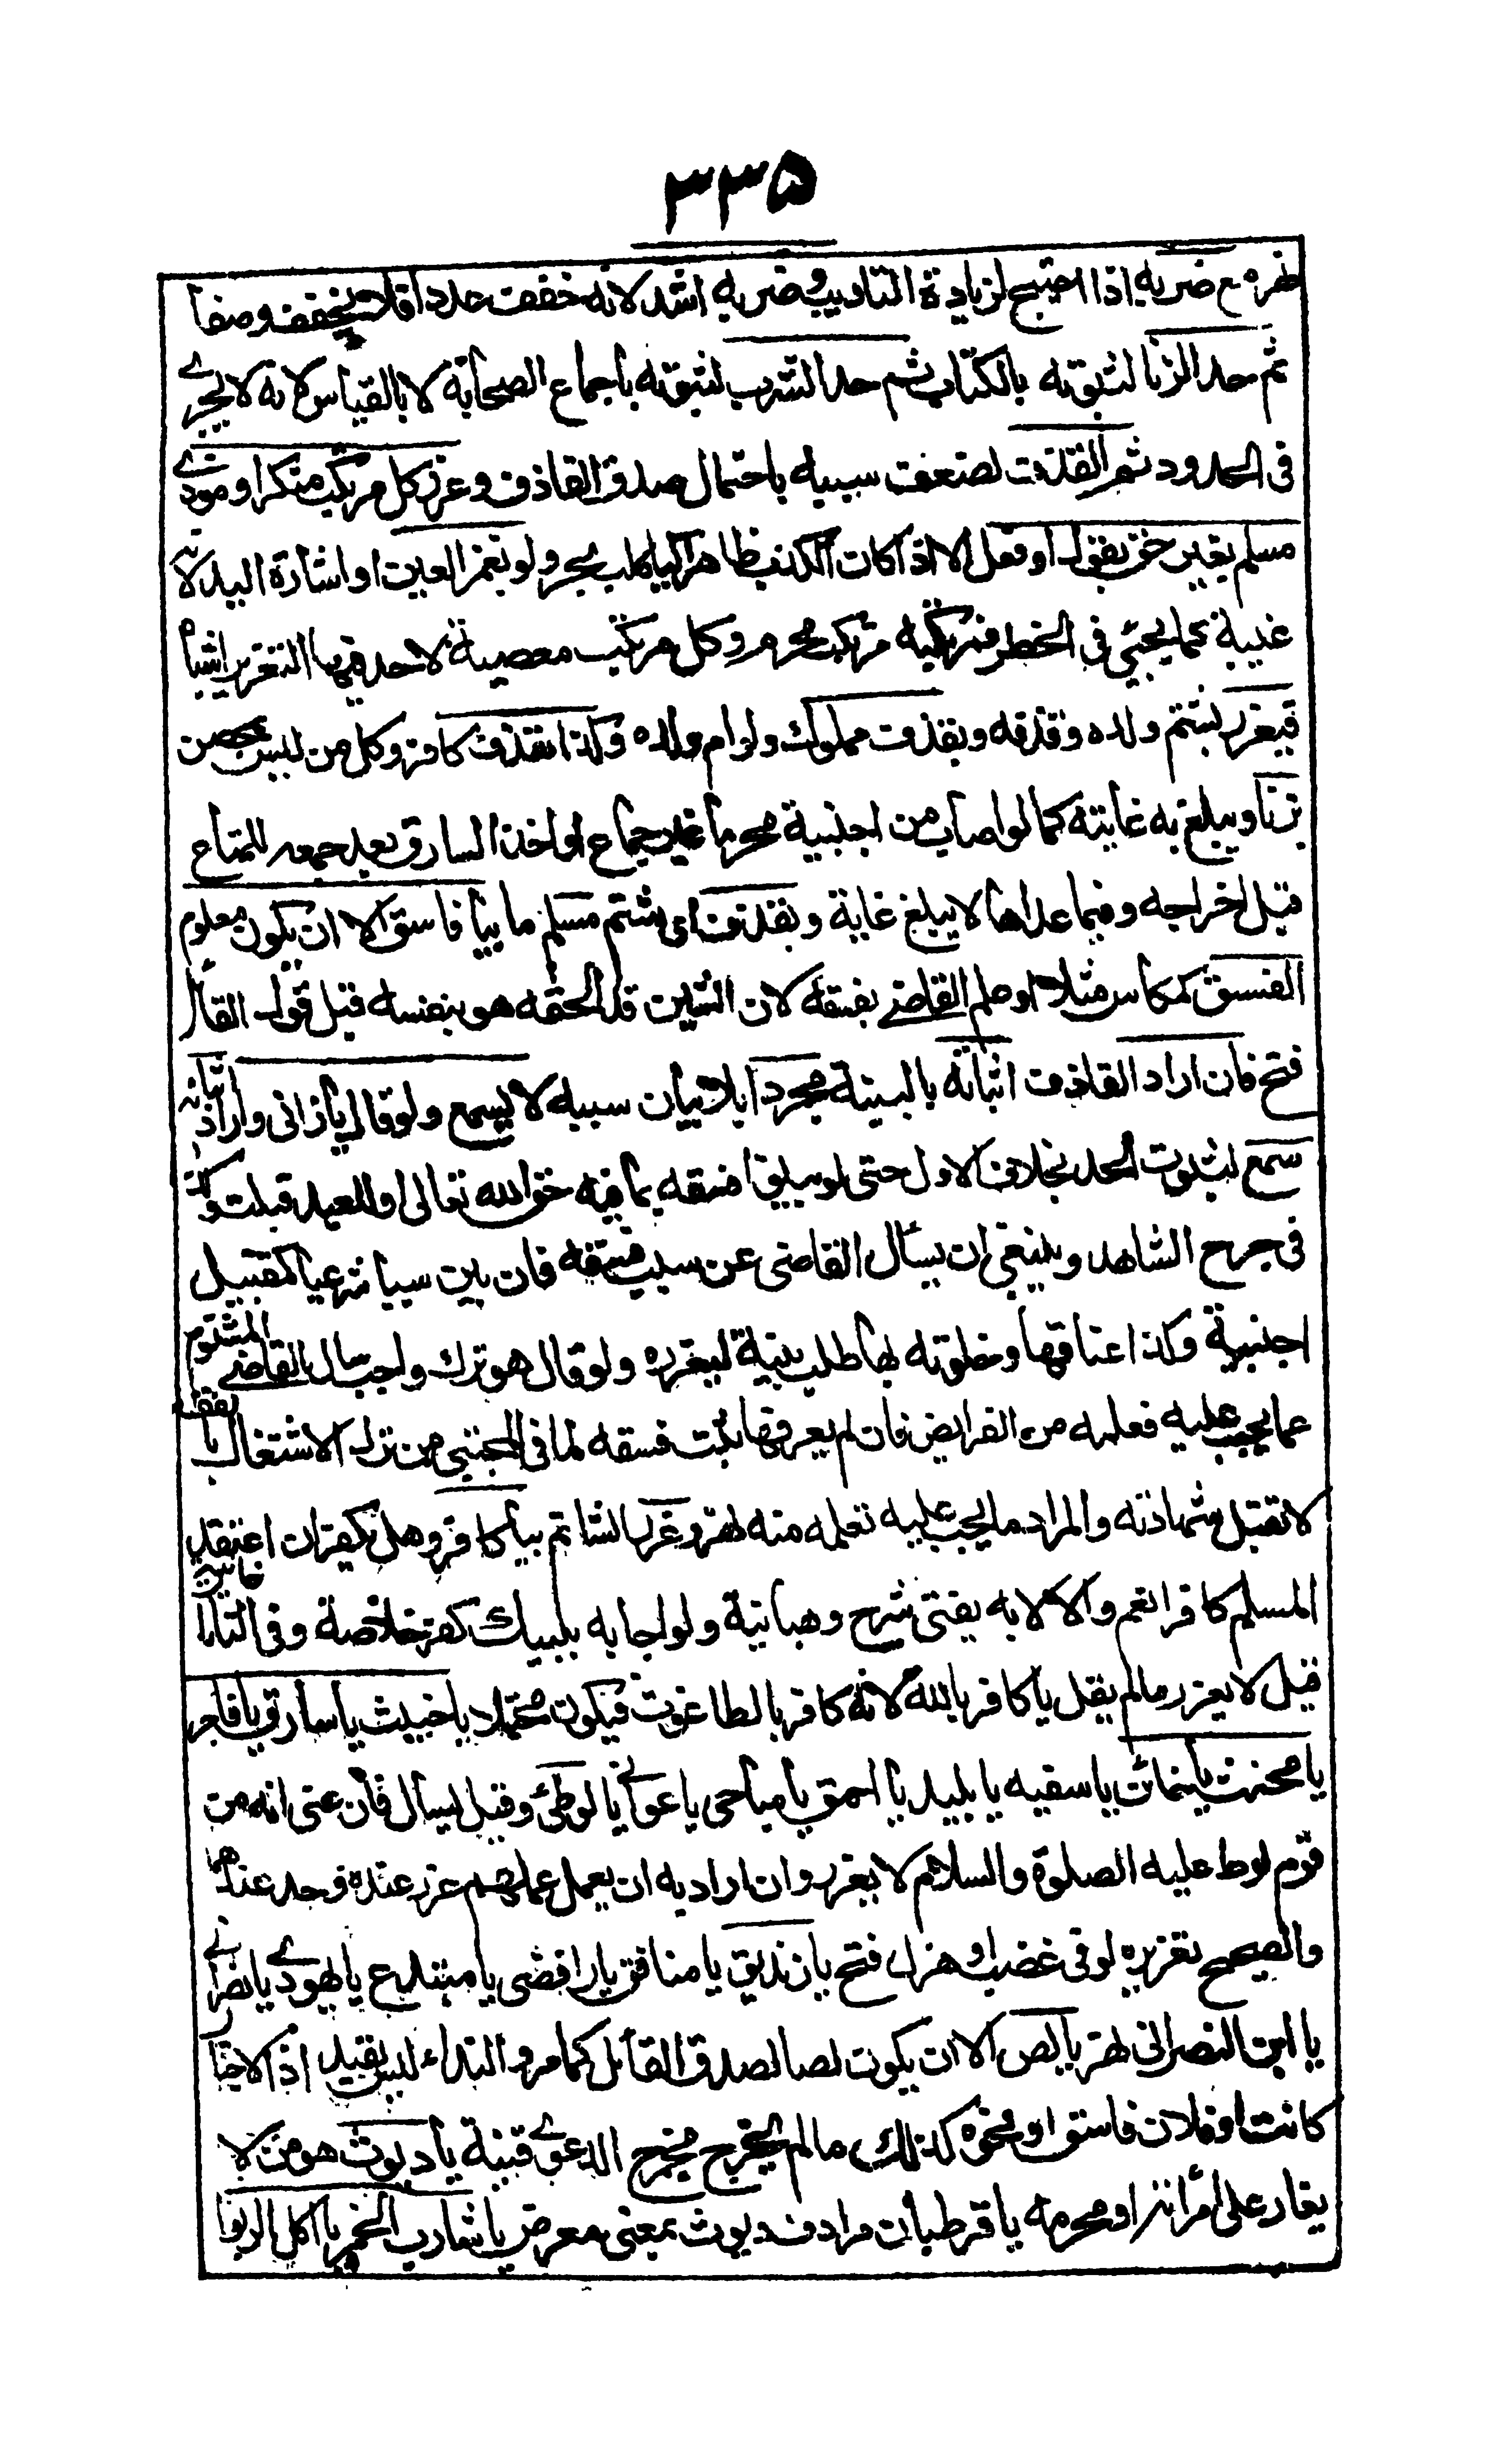 ٣٣٥
ظهره مع ضربه اذا احتيج لزيادة التاديب وضربه اشد لانه خفف عددا فلا يخفف وصفا
ثم حد الزنا لثبوته بالكتاب ثم حد الشرب لثبوته باجماع الصحابة لا بالقياس لانه لا يجرے
فى الحدود ثم القذف لضعف سببه باحتمال صدق القاذف وعزر كل مرتكب منكر او موذے
مسلم بغير حق بقول او فعل الا اذا كان الكذب ظاهرا كيا كلب بحر ولو بغمز العين او اشارة اليد لانه
غيبة كما يجئ فى الحظر فمرتكبه مرتكب محرم وكل مرتكب معصية لا حد فيها التعزير اشباه
فيعزر بشتم ولده وقذفه وبقذف مملوك ولو ام ولده وكذا بقذف كافر وكل من ليس بمحصن
بزنا ويبلغ به غايته كما لو اصاب من اجنبية محرما غير جماع او اخذ السارق بعد جمعه للمتاع
قبل اخراجه وفيما عداها لا يبلغ غاية وبقذف اى بشتم مسلم ما بيا فاسق الا ان يكون معلوم
الفسق كمكاس مثلا او علم القاضے بفسقه لان الشين قد الحقه هو بنفسه قبل قول القائل
فتح فان اراد القاذف اثباته بالبينة مجردا بلا بيان سببه لا يسمع ولو قال يا زانى واراد اثباته
سمع لثبوت الحد بخلاف الاول حتى لو بينوا فسقه بما فيه حق الله تعالى او للعبد قبلت وكذا
فى جرح الشاهد وينبغى ان يسأل القاضى عن سبب فسقه فان بين سببا شرعيا كتقبيل
اجنبية وكذا عناقها وخلوته بها طلب بينة ليعزره ولو قال هو ترك واجب سال القاضے المشتوم
عما يجب عليه فعلمه من الفرايض فان لم يعرفها ثبت فسقه لما فى المجتبى من ترك الاشتغال بالفقه
لا تقبل شهادته والمراد ما يجب عليه تعلمه منه نهر وعزر الشاتم بيا كافر وهل يكفر ان اعتقد
المسلم كافرا نعم والا لا به يفتى شرح وهبانية ولو اجابه بلبيك كفر خلاصة وفى التاتارخانية
قيل لا يعزر ما لم يقل يا كافر بالله لانه كافر بالطاغوت فيكون محتملا يا خبيث يا سارق يا فاجر
يا مخنث يا خائن يا سفيه يا بليد يا احمق يا مباحى يا عوانى يا لوطئ وقيل يسأل فان عنى انه من
قوم لوط عليه الصلوة والسلام لا يعزر وان اراد به ان يعمل عملهم عزر عنده وحد عندهما
والصحيح تعزيره لو فى غضب او هزل فتح يا زنديق يا منافق يا رافضى يا مبتدع يا يهودے يا نصرانے
يا ابن النصرانى نهر يا لص الا ان يكون لصا لصدق القائل كما مر والنداء ليس بقيد اذ الاخبار
كانت او فلان فاسق او نحوه كذلك ما لم يخرج مخرج الدعوے قنية يا ديوث هو من لا
يغار على امرأته او محرمه يا قرطبان مرادف ديوث بمعنى معرص يا شارب الخمر يا اكل الربوا